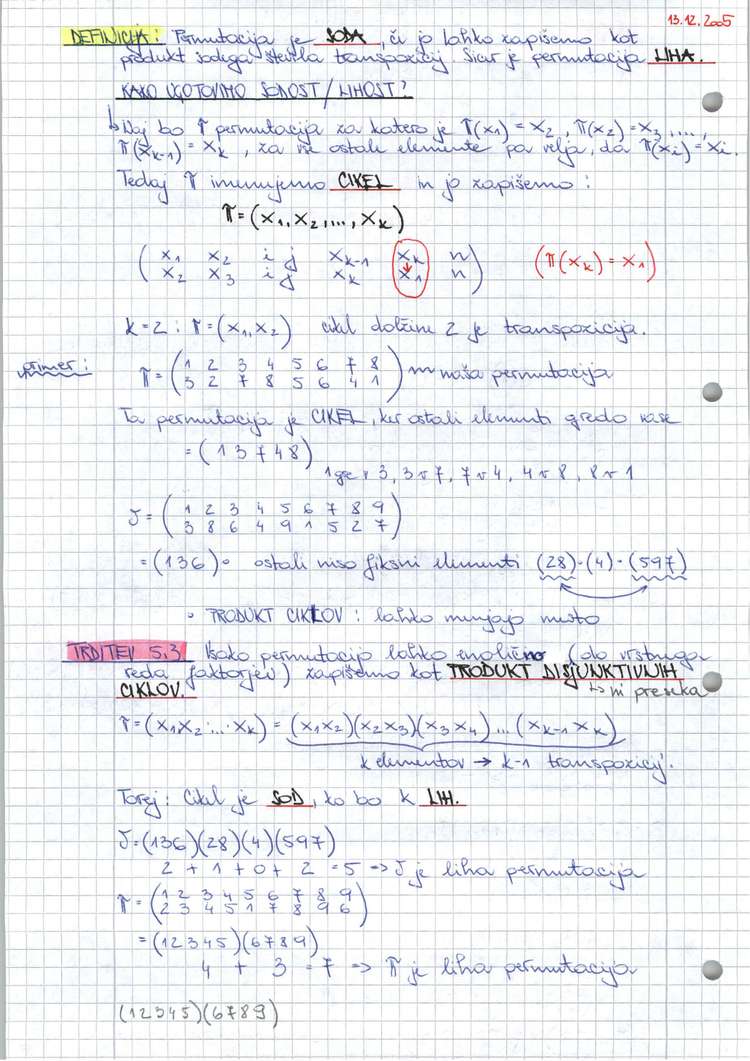 13.12.2005
DEFINICIJA: Permutacija je SODA, če jo lahko zapišemo kot
produkt sodega števila transpozicij. Sicer je permutacija LIHA.
KAKO UGOTOVIMO SODOST/LIHOST?
↳ Naj bo π permutacija za katero je π(x₁)=x₂, π(x₂)=x₃, ...,
π(x_{k-1})=x_k, za vse ostale elemente pa velja, da π(x_i)=x_i.
Tedaj π imenujemo CIKEL in jo zapišemo:
π=(x₁,x₂,...,x_k)
( x₁ x₂ i j x_{k-1} x_k n ) (π(x_k)=x₁)
( x₂ x₃ i j x_k x₁ n )
k=2: π=(x₁,x₂) cikel dolžine 2 je transpozicija.
primer: π=( 1 2 3 4 5 6 7 8 ) naša permutacija
( 3 2 7 8 5 6 4 1 )
Ta permutacija je CIKEL, ker ostali elementi gredo vase
=(1 3 7 4 8)
1 gre v 3, 3 v 7, 7 v 4, 4 v 8, 8 v 1
J=( 1 2 3 4 5 6 7 8 9 )
( 3 8 6 4 9 1 5 2 7 )
=(136)∘ ostali niso fiksni elementi (28)∘(4)∘(597)
∘ PRODUKT CIKLOV: lahko menjajo mesto
TRDITEV 5.3 Vsako permutacijo lahko enolično (do vrstnega
reda faktorjev) zapišemo kot PRODUKT DISJUNKTIVNIH
CIKLOV. ↳ ni preseka
π=(x₁x₂...x_k)=(x₁x₂)(x₂x₃)(x₃x₄)...(x_{k-1}x_k)
k elementov → k-1 transpozicij.
Torej: Cikel je SOD, ko bo k LIH.
J=(136)(28)(4)(597)
2+1+0+2=5 => J je liha permutacija
π=( 1 2 3 4 5 6 7 8 9 )
( 2 3 4 5 1 7 8 9 6 )
=(12345)(6789)
4 + 3 = 7 => π je liha permutacija
(12345)(6789)